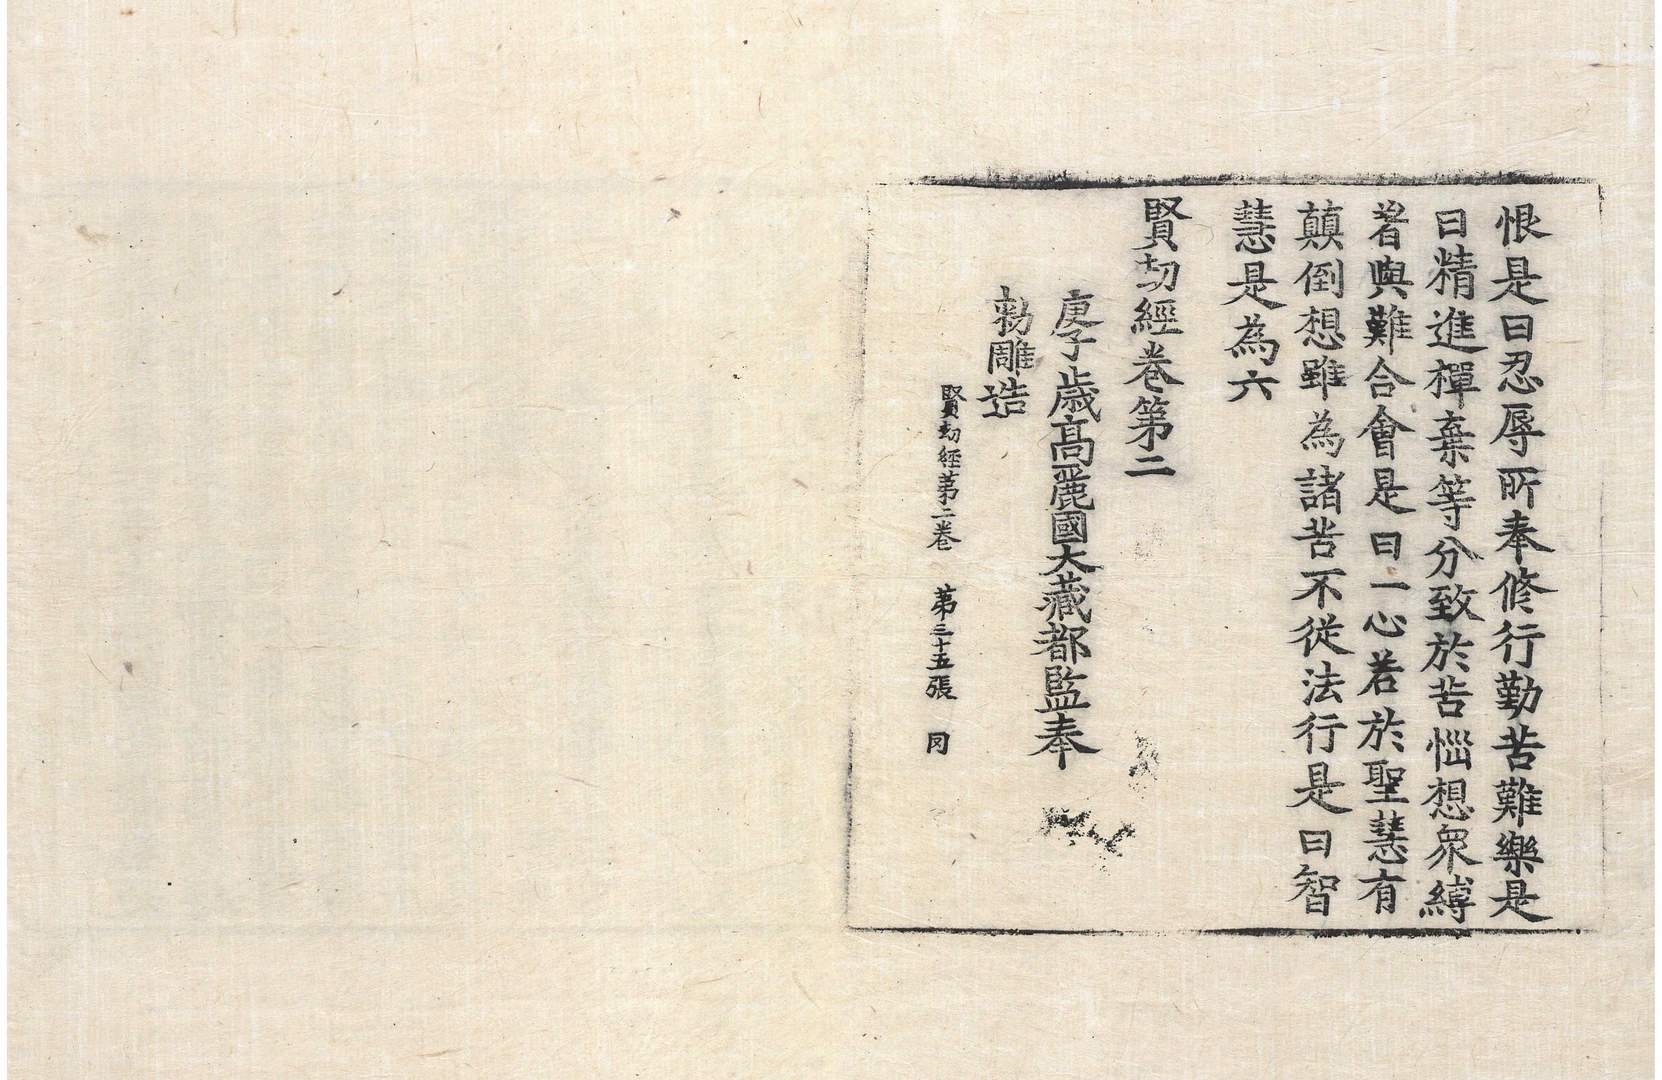 恨是曰忍辱所奉修行勤苦難樂是
曰精進禪棄等分致於苦惱想衆縛
著與難合會是曰一心若於聖慧有
顛倒想雖為諸苦不從法行是曰智
慧是為六
賢劫經卷第二
庚子歲高麗國大藏都監奉
勑雕造
賢劫經第二卷　第三十五張　冈